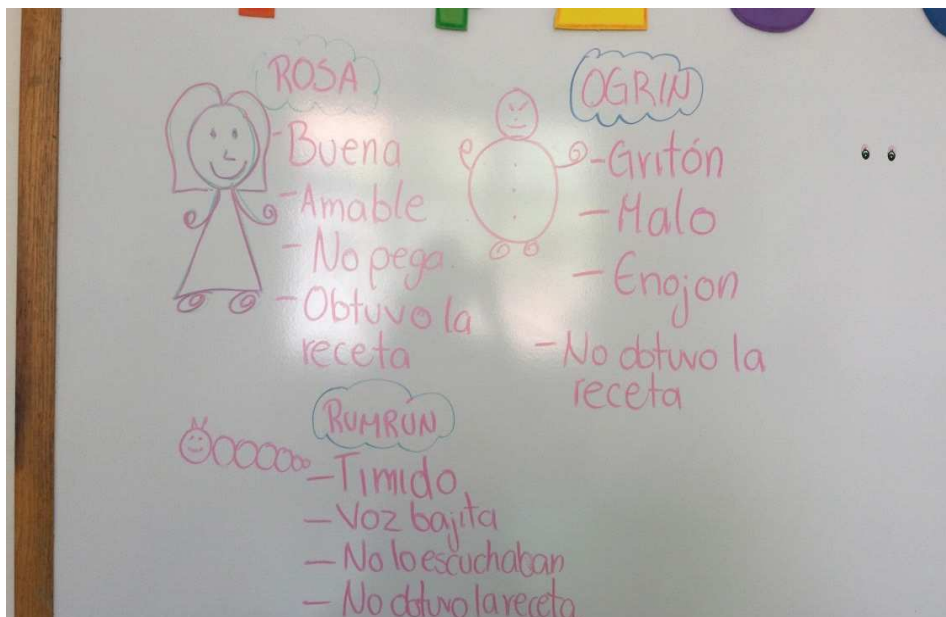 ROSA
- Buena
- Amable
- No pega
- Obtuvo la
receta
OGRIN
- Gritón
- Malo
- Enojon
- No obtuvo la
receta
RUMRUN
- Timido
- Voz bajita
- No lo escuchaban
- No obtuvo la receta